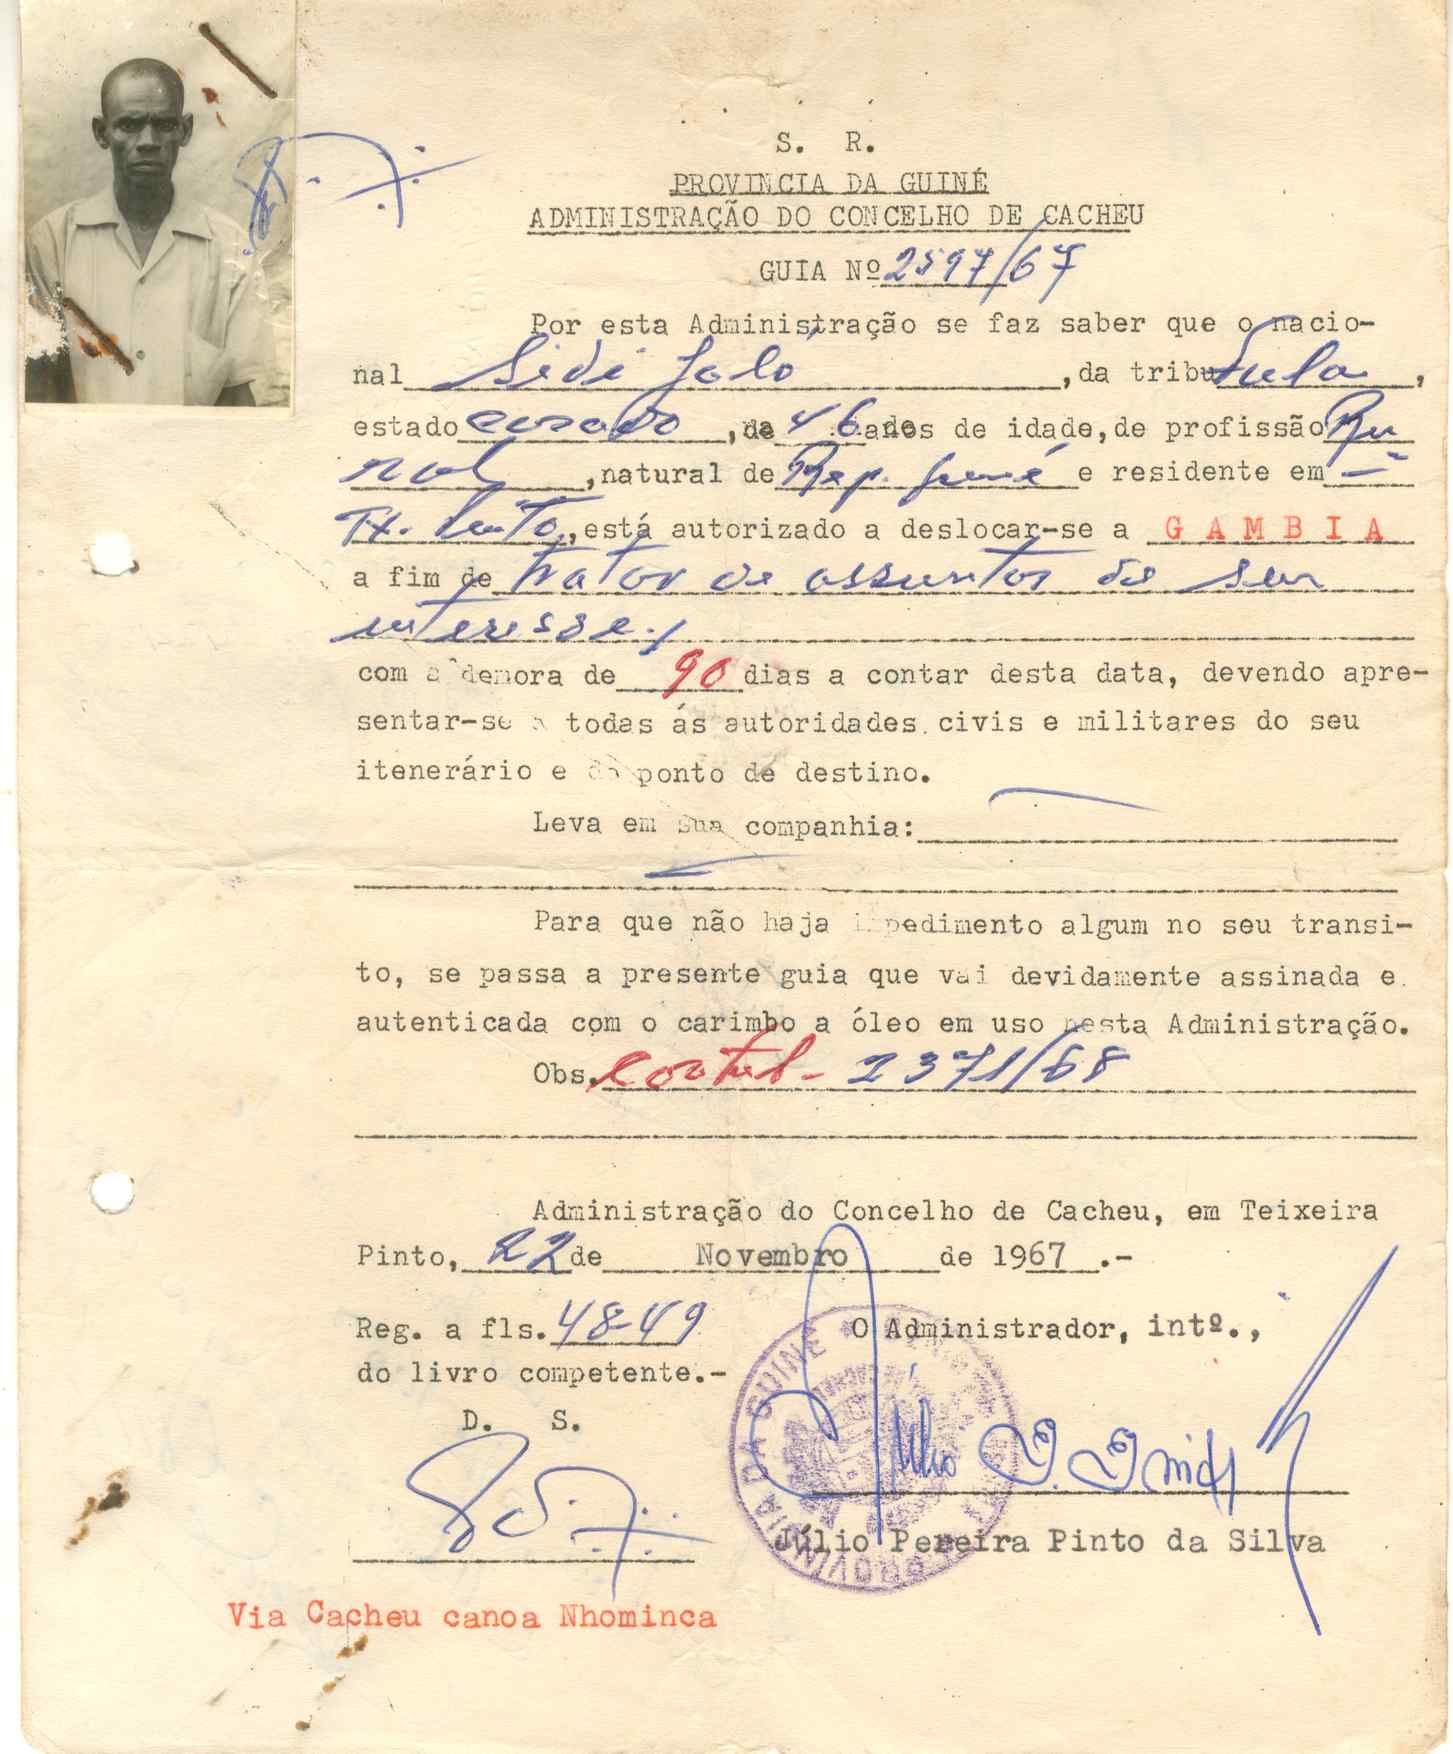 S. R.
PROVINCIA DA GUINÉ
ADMINISTRAÇÃO DO CONCELHO DE CACHEU
GUIA Nº 2597/67
Por esta Administração se faz saber que o nacio-
nal Sidi Jaló, da tribu Fula,
estado casado, de 46 anos de idade, de profissão Ru
ral, natural de Rep. Guiné e residente em -
Tx. Pinto, está autorizado a deslocar-se a GAMBIA
a fim de tratar de assuntos de seu
interesse./
com a demora de 90 dias a contar desta data, devendo apre-
sentar-se a todas ás autoridades civis e militares do seu
itenerário e do ponto de destino.
Leva em sua companhia:
Para que não haja impedimento algum no seu transi-
to, se passa a presente guia que vai devidamente assinada e
autenticada com o carimbo a óleo em uso nesta Administração.
Obs. 2371/68
Administração do Concelho de Cacheu, em Teixeira
Pinto, 22 de Novembro de 1967.-
Reg. a fls. 48-49 O Administrador, intº.,
do livro competente.-
D. S.
PROVINCIA DA GUINÉ
Júlio Pereira Pinto da Silva
Via Cacheu canoa Nhominca